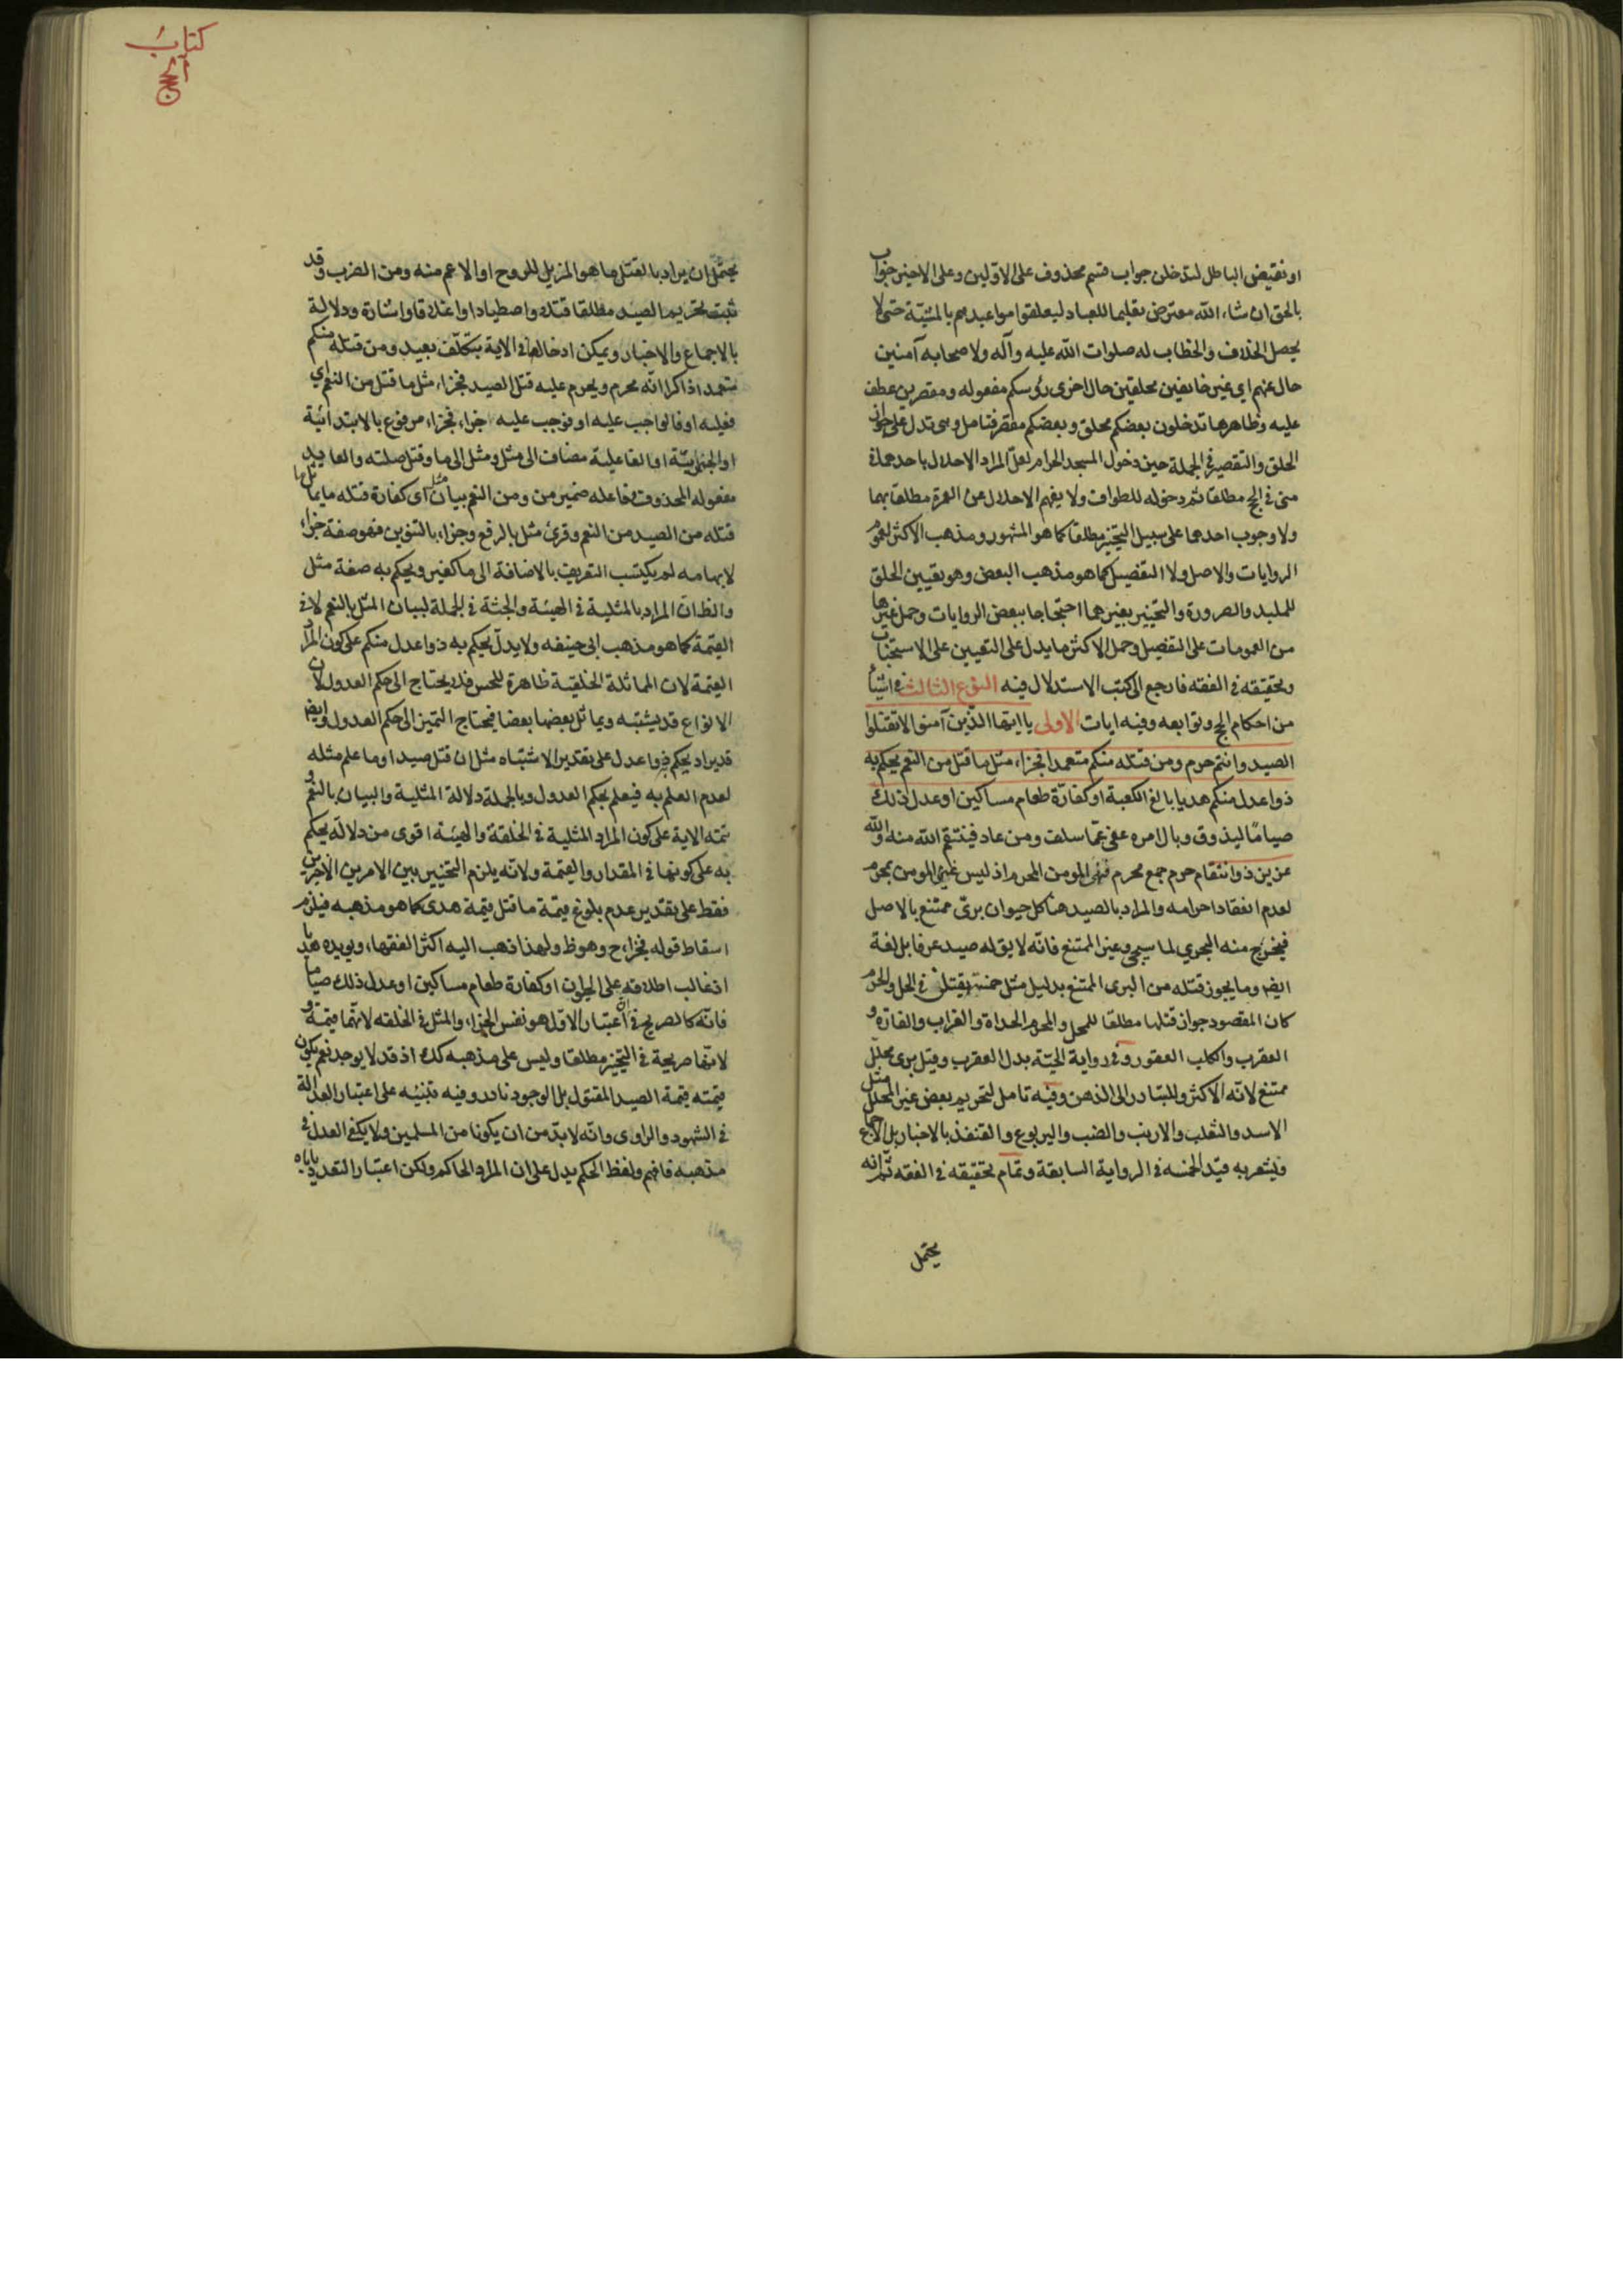 او نقيض الباطل لتدخلن جواب قسم محذوف على الاولين وعلى الاخير جواب
بالحق ان شاء الله معترض تعليما للعباد ليعلقوا مواعيدهم بالمشيّة حتى لا
يحصل الخلاف والخطاب له صلوات الله عليه وآله ولاصحابه آمنين
حال عنهم اي غير خايفين محلقين حال اخرى رؤسكم مفعوله ومقصرين عطف
عليه وظاهرها تدخلون بعضكم محلق وبعضكم مقصر فتامل وهى تدل على جواز
الحلق والتقصير في الجملة حين دخول المسجد الحرام لعل المراد الاحلال باحدهما في
منى في الحج مطلقا ثم دخوله للطواف ولا يفهم الاحلال عن العمرة مطلقا بهما
ولا وجوب احدهما على سبيل التخيير مطلقا كما هو المشهور ومذهب الاكثر لعموم
الروايات والاصل ولا التفصيل كما هو مذهب البعض وهو تعيين الحلق
للملبد والصرورة والتخيير بغيرهما احتجاجا ببعض الروايات وحمل غيرها
من العمومات على التفصيل وحمل الاكثر ما يدل على التعيين على الاستحباب
وتحقيقه في الفقه فارجع الى كتب الاستدلال فيه النوع الثالث في اشياء
من احكام الحج وتوابعه وفيه ايات الاولى يا ايها الذين آمنوا لا تقتلوا
الصيد وانتم حرم ومن قتله منكم متعمدا فجزاء مثل ما قتل من النعم يحكم به
ذوا عدل منكم هديا بالغ الكعبة او كفارة طعام مساكين او عدل ذلك
صياما ليذوق وبال امره عفى عما سلف ومن عاد فينتقم الله منه والله
عزيز ذو انتقام حرم جمع محرم فنهى المومن المحرم اذ ليس غير المومن بمحرم
لعدم انعقاد احرامه والمراد بالصيد هنا كل حيوان برى ممتنع بالاصل
فيخرج منه البحري لما سيجئ وغير الممتنع فانه لا يق له صيد عرفا بل لغة
ايضا وما يجوز قتله من البرى الممتنع بدليل مثل خمسة يقتلن في الحل والحرم
كان المقصود جواز قتلها مطلقا للمحل والمحرم الحداة والغراب والفارة و
العقرب والكلب العقور وفي رواية الحيّة بدل العقرب وقيل برى محلل
ممتنع لانه الاكثر والمتبادر الى الذهن وفيه تامل لتحريم بعض غير المحلل مثل
الاسد والثعلب والارنب والضب واليربوع والقنفذ بالاخبار بل الاجماع
ويشعر به قيد الخمسة في الرواية السابقة وتمام تحقيقه في الفقه ثم انه
يحتمل
كتاب
الحج
يحتمل ان يراد بالقتل ما هو المزيل للروح او الاعم منه ومن الضرب وقد
ثبت تحريم الصيد مطلقا قتلا واصطيادا واغلاقا واشارة ودلالة
بالاجماع والاخبار ويمكن ادخالها في الاية بتكلف بعيد ومن قتله منكم
متعمدا ذاكرا انه محرم ويحرم عليه قتل الصيد فجزاء مثل ما قتل من النعم اي
فعليه او فالواجب عليه او فوجب عليه جزاء فجزاء مرفوع بالابتدائية
او الخبرية او الفاعلية مضاف الى مثل ومثل الى ما وقتل صلته والعايد
مفعوله المحذوف وفاعله ضمير من ومن النعم بيان مثل اى كفارة قتله ما يماثل ما
قتله من الصيد من النعم وقرئ مثل بالرفع وجزاء بالتنوين فهو صفة جزاء
لابهامه لم يكتسب التعريف بالاضافة الى ما كغير ويحكم به صفة مثل
والظ ان المراد بالمثلية في الهيئة والجثة في الجملة لبيان المثل بالنعم لا في
القيمة كما هو مذهب ابى حنيفه ولا يدل يحكم به ذوا عدل منكم على كون المراد
القيمة لان المماثلة الخلقية ظاهرة للحس فلا يحتاج الى حكم العدول لان
الانواع قد يشتبه ويماثل بعضها بعضا فيحتاج التميز الى حكم العدول وايضا
قد يراد يحكم ذوا عدل على تقدير الاشتباه مثل ان قتل صيدا وما علم مثله
لعدم العلم به فيعلم بحكم العدول وبالجملة دلالة المثلية والبيان بالنعم و
تتمه الاية على كون المراد المثلية في الخلقة والهيئة اقوى من دلالة يحكم
به على كونها في المقدار والقيمة ولانه يلزم التخيير بين الامرين الاخيرين
فقط على تقدير عدم بلوغ قيمة ما قتل قيمة هدى كما هو مذهبه فيلزم
اسقاط قوله فجزاء ح وهو ظ ولهذا ذهب اليه اكثر الفقهاء ويويده هديا
اذ غالب اطلاقه على الحيوان او كفارة طعام مساكين او عدل ذلك صياما
فانه كالصريح في ان اعتبار الاول هو نفس الجزاء والمثل في الخلقه لانها قيمة و
لانها صريحة في التخيير مطلقا وليس على مذهبه كك اذ قد لا يوجد نعم يكون
قيمته قيمة الصيد المقتول بل الوجود نادر وفيه تنبيه على اعتبار العدالة
في الشهود والراوى وانه لا بد من ان يكونا من المسلمين ولا يكفى العدل في
مذهبه فافهم ولفظ الحكم يدل على ان المراد الحاكم ولكن اعتبار التعدد ياباه